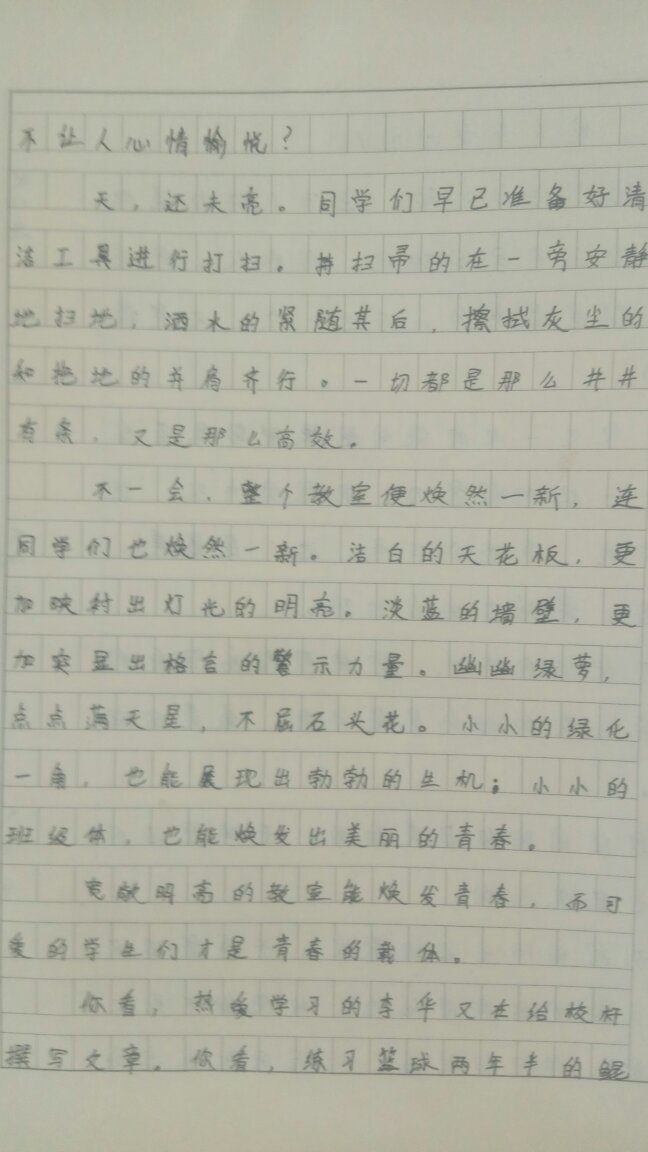 不让人心情愉悦？
天，还未亮。同学们早已准备好清
洁工具进行打扫。拷扫帚的在一旁安静
地扫地，洒水的紧随其后，擦拭灰尘的
和拖地的并肩齐行。一切都是那么井井
有条，又是那么高效。
不一会，整个教室便焕然一新，连
同学们也焕然一新。洁白的天花板，更
加映衬出灯光的明亮。淡蓝的墙壁，更
加突显出格言的警示力量。幽幽绿萝，
点点满天星，不屈石头花。小小的绿化
一角，也能展现出勃勃的生机；小小的
班级体，也能焕发出美丽的青春。
宽敞明亮的教室能焕发青春，而可
爱的学生们才是青春的载体。
你看，热爱学习的李华又在给校杆
撰写文章。你看，练习篮球两年半的鲲